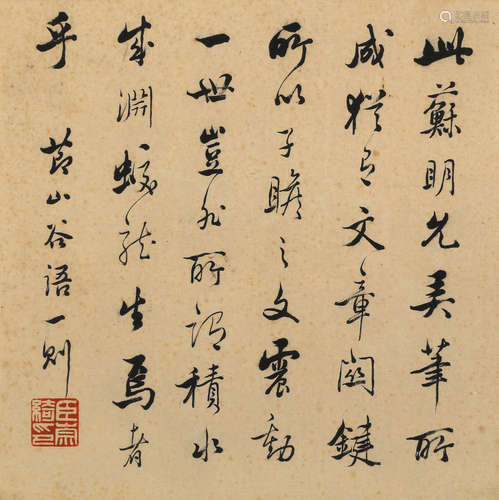 此蘇明允異筆所
成猶文章關鍵
所以子瞻之文震動
一世豈非所謂積水
成淵蛟龍生焉者
乎 節山谷語一則